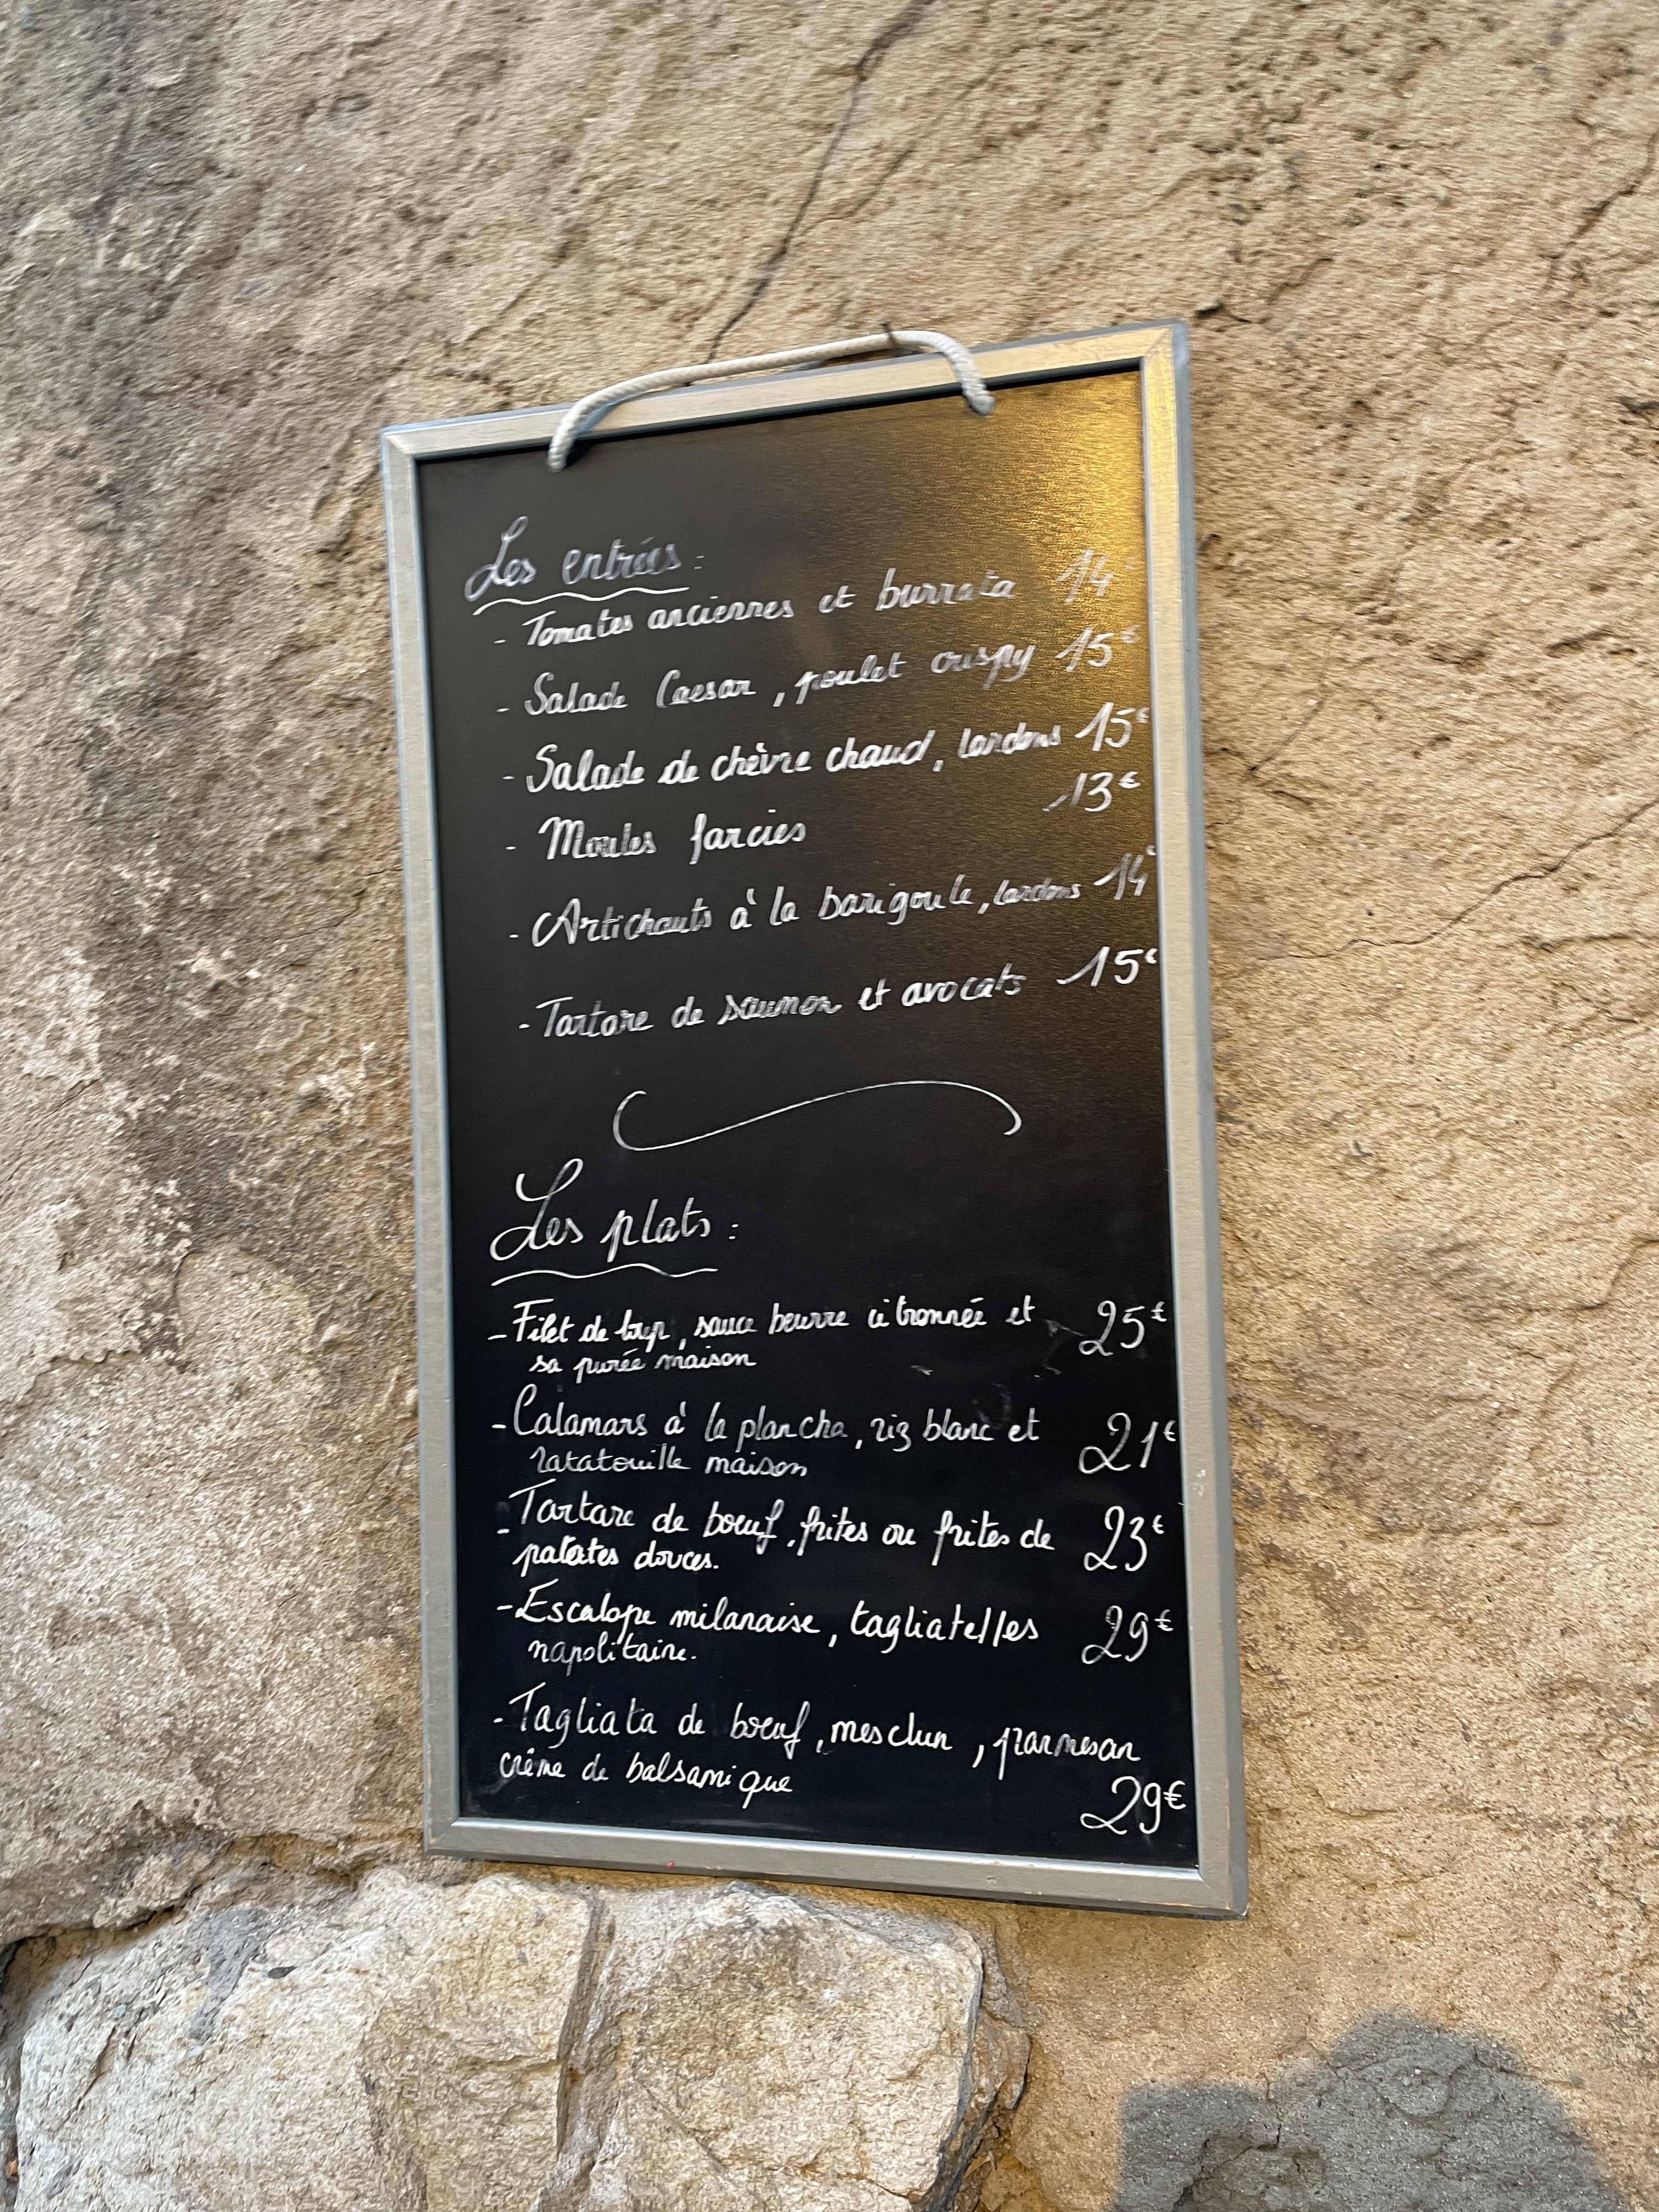 Les entrées :
- Tomates anciennes et burrata 14€
- Salade Caesar, poulet crispy 15€
- Salade de chèvre chaud, lardons 15€
- Moules farcies 13€
- Artichauts à la barigoule, lardons 14€
- Tartare de saumon et avocats 15€
Les plats :
- Filet de loup, sauce beurre citronnée et 25€
sa purée maison
- Calamars à la plancha, riz blanc et 21€
ratatouille maison
- Tartare de bœuf, frites ou frites de 23€
patates douces.
- Escalope milanaise, tagliatelles 29€
napolitaine.
- Tagliata de bœuf, mesclun, parmesan
crème de balsamique
29€